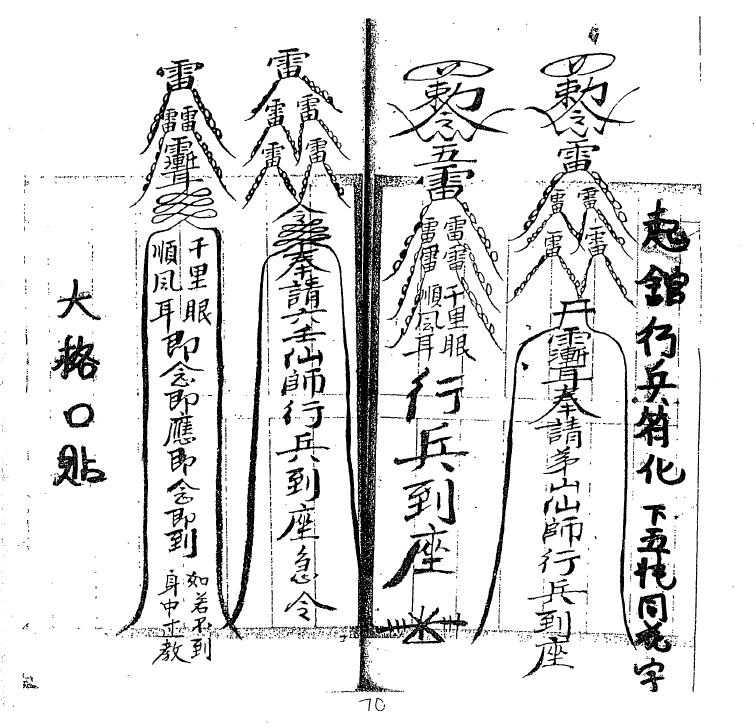 起館行兵符化 下五
同
字
勅令
雷
雷雷
雷雷
奉請茅山仙師行兵到座
勅令
五雷
雷雷
雷雷
千里眼
順風耳
行兵到座
雷
雷雷
雷雷
奉請六壬仙師行兵到座急令
雷
雷雷
千里眼
順風耳
即念即應即念即到
如若不到
身中寸教
大格口貼
70